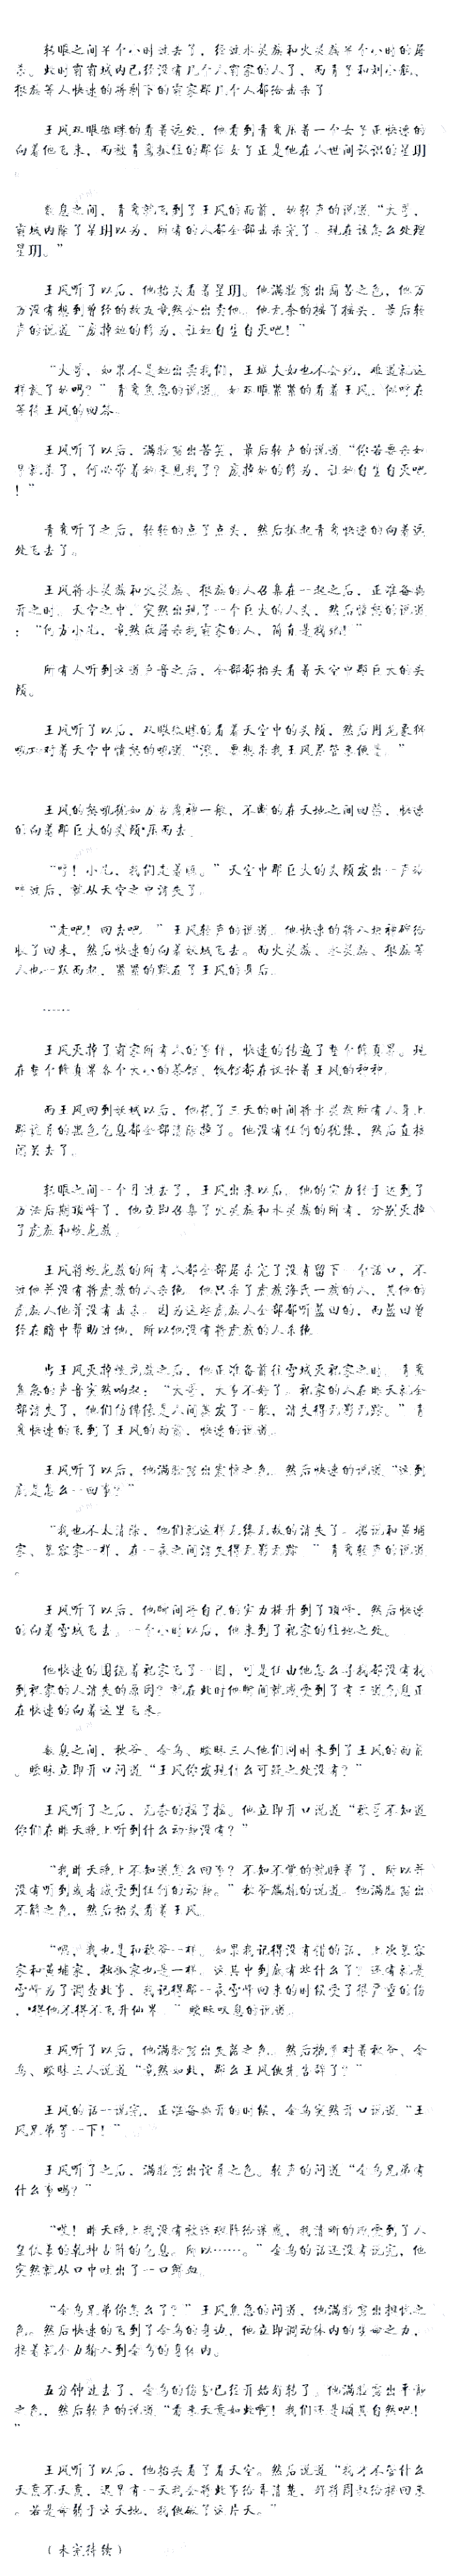 转眼之间半个小时过去了，经过水灵族和火灵族半个小时的屠
杀。此时前前城内已经没有几个人前家的人了，而青鸾和刘小熊、
狼族等人快速的将剩下的前家那几个人都给击杀了
王风双眼微眯的看着远处，他看到青鸾压着一个女子正快速的
向着他飞来，而被青鸾抓住的那位女子正是他在人世间认识的星玥
。
数息之间，青鸾就飞到了王风的面前，她轻声的说道“大哥，
前城内除了星玥以为，所有的人都全部击杀完了。现在该怎么处理
星玥。”
王风听了以后，他抬头看着星玥。他满脸露出痛苦之色，他万
万没有想到曾经的故友竟然会出卖他。他无奈的摇了摇头，最后轻
声的说道“废掉她的修为，让她自生自灭吧！”
“大哥，如果不是她出卖我们，王城大如也不会死，难道就这
样放了她吗？”青鸾焦急的说道。她双眼紧紧的看着王风，似乎在
等待王风的回答。
王风听了以后，满脸露出苦笑，最后轻声的说道“你若要杀她
早就杀了，何必带着她来见我了？废掉她的修为，让她自生自灭吧
！”
青鸾听了之后，轻轻的点了点头，然后抓起青鸾快速的向着远
处飞去了。
王风将水灵族和火灵族、狼族的人召集在一起之后，正准备离
开之时。天空之中，突然出现了一个巨大的人头，然后愤怒的说道
：“何方小儿，竟然敢屠杀我前家的人，简直是找死！”
所有人听到这道声音之后，全部都抬头看着天空中那巨大的头
颅。
王风听了以后，双眼微眯的看着天空中的头颅，然后用龙象般
吼功对着天空中愤怒的吼道“滚，要想杀我王风尽管来便是。”
王风的怒吼犹如万古魔神一般，不断的在天地之间回荡，快速
的向着那巨大的头颅压而去。
“哼！小儿，我们走着瞧。”天空中那巨大的头颅发出一声冷
哼过后，就从天空之中消失了。
“走吧！回去吧。”王风轻声的说道。他快速的将八块神碑给
收了回来，然后快速的向着妖城飞去。而火灵族、水灵族、狼族等
人也一跃而起，紧紧的跟在了王风的身后。
……
王风灭掉了前家所有人的事件，快速的传遍了整个修真界。现
在整个修真界各个大小的茶馆、饭馆都在议论着王风的种种。
而王风回到妖城以后，他花了三天的时间将水灵族所有人身上
那诡异的黑色气息都全部清除掉了。他没有任何的犹豫，然后直接
闭关去了。
转眼之间一个月过去了，王风出来以后，他的实力终于达到了
方法后期顶峰了，他立即召集了火灵族和水灵族的所有，分别灭掉
了虎族和蛟龙族。
王风将蛟龙族的所有人都全部屠杀完了没有留下一个活口，不
过他并没有将虎族的人杀绝，他只杀了虎族海氏一族的人，其他的
虎族人他并没有击杀。因为这些虎族人全部都听蓝田的，而蓝田曾
经在暗中帮助过他，所以他没有将虎族的人杀绝。
当王风灭掉蛟龙族之后，他正准备前往雪城灭祝家之时，青鸾
焦急的声音突然响起：“大哥，大事不好了。祝家的人在昨天就全
部消失了，他们仿佛像是人间蒸发了一般，消失得无影无踪。”青
鸾快速的飞到了王风的面前，快速的说道。
王风听了以后，他满脸露出震惊之色，然后快速的说道“这到
底是怎么一回事？”
“我也不太清楚，他们就这样无缘无故的消失了。据说和黄埔
家、慕容家一样，在一夜之间消失得无影无踪。”青鸾轻声的说道
。
王风听了以后，他瞬间将自己的实力提升到了顶峰，然后快速
的向着雪城飞去。一个小时以后，他来到了祝家的住地之处。
他快速的围绕着祝家飞了一圈，可是任由他怎么寻找都没有找
到祝家的人消失的原因？就在此时他瞬间就感受到了有三道气息正
在快速的向着这里飞来。
数息之间，秋谷、金乌、暧昧三人他们同时来到了王风的面前
。暧昧立即开口问道“王风你发现什么可疑之处没有？”
王风听了之后，无奈的摇了摇。他立即开口说道“秋哥不知道
你们在昨天晚上听到什么动静没有？”
“我昨天晚上不知道怎么回事？不知不觉的就睡着了，所以并
没有听到或者感受到任何的动静。”秋谷尴尬的说道。他满脸露出
不解之色，然后抬头看着王风。
“嗯，我也是和秋谷一样。如果我记得没有错的话，上次慕容
家和黄埔家，独孤家也是一样。这其中到底有些什么了？还有就是
雪峰为了调查此事，我记得那一夜雪峰回来的时候受了很严重的伤
，使得他不得不飞升仙界。”暧昧叹息的说道。
王风听了以后，他满脸露出失落之色，然后抱拳对着秋谷、金
乌、暧昧三人说道“竟然如此，那么王风便先告辞了？”
王风的话一说完，正准备离开的时候，金乌突然开口说道“王
风兄弟等一下！”
王风听了之后，满脸露出诧异之色。轻声的问道“金乌兄弟有
什么事吗？”
“哎！昨天晚上我没有被法规阵给迷惑，我清晰的感受到了人
皇伏羲的乾坤古阵的气息。所以……。”金乌的话还没有说完，他
突然就从口中吐出了一口鲜血。
“金乌兄弟你怎么了？”王风焦急的问道，他满脸露出担忧之
色。然后快速的飞到了金乌的身边，他立即调动体内的生命之力，
接着就全力输入到金乌的身体内。
五分钟过去了，金乌的伤势已经开始好转了。他满脸露出平静
之色，然后轻声的说道“看来天意如此啊！我们还是顺其自然吧！
”
王风听了以后，他抬头看了看天空。然后说道“我才不管什么
天意不天意，迟早有一天我会将此事给弄清楚，并将周叔给接回来
。若是命转于这天地，我便破了这片天。”
（未完待续）